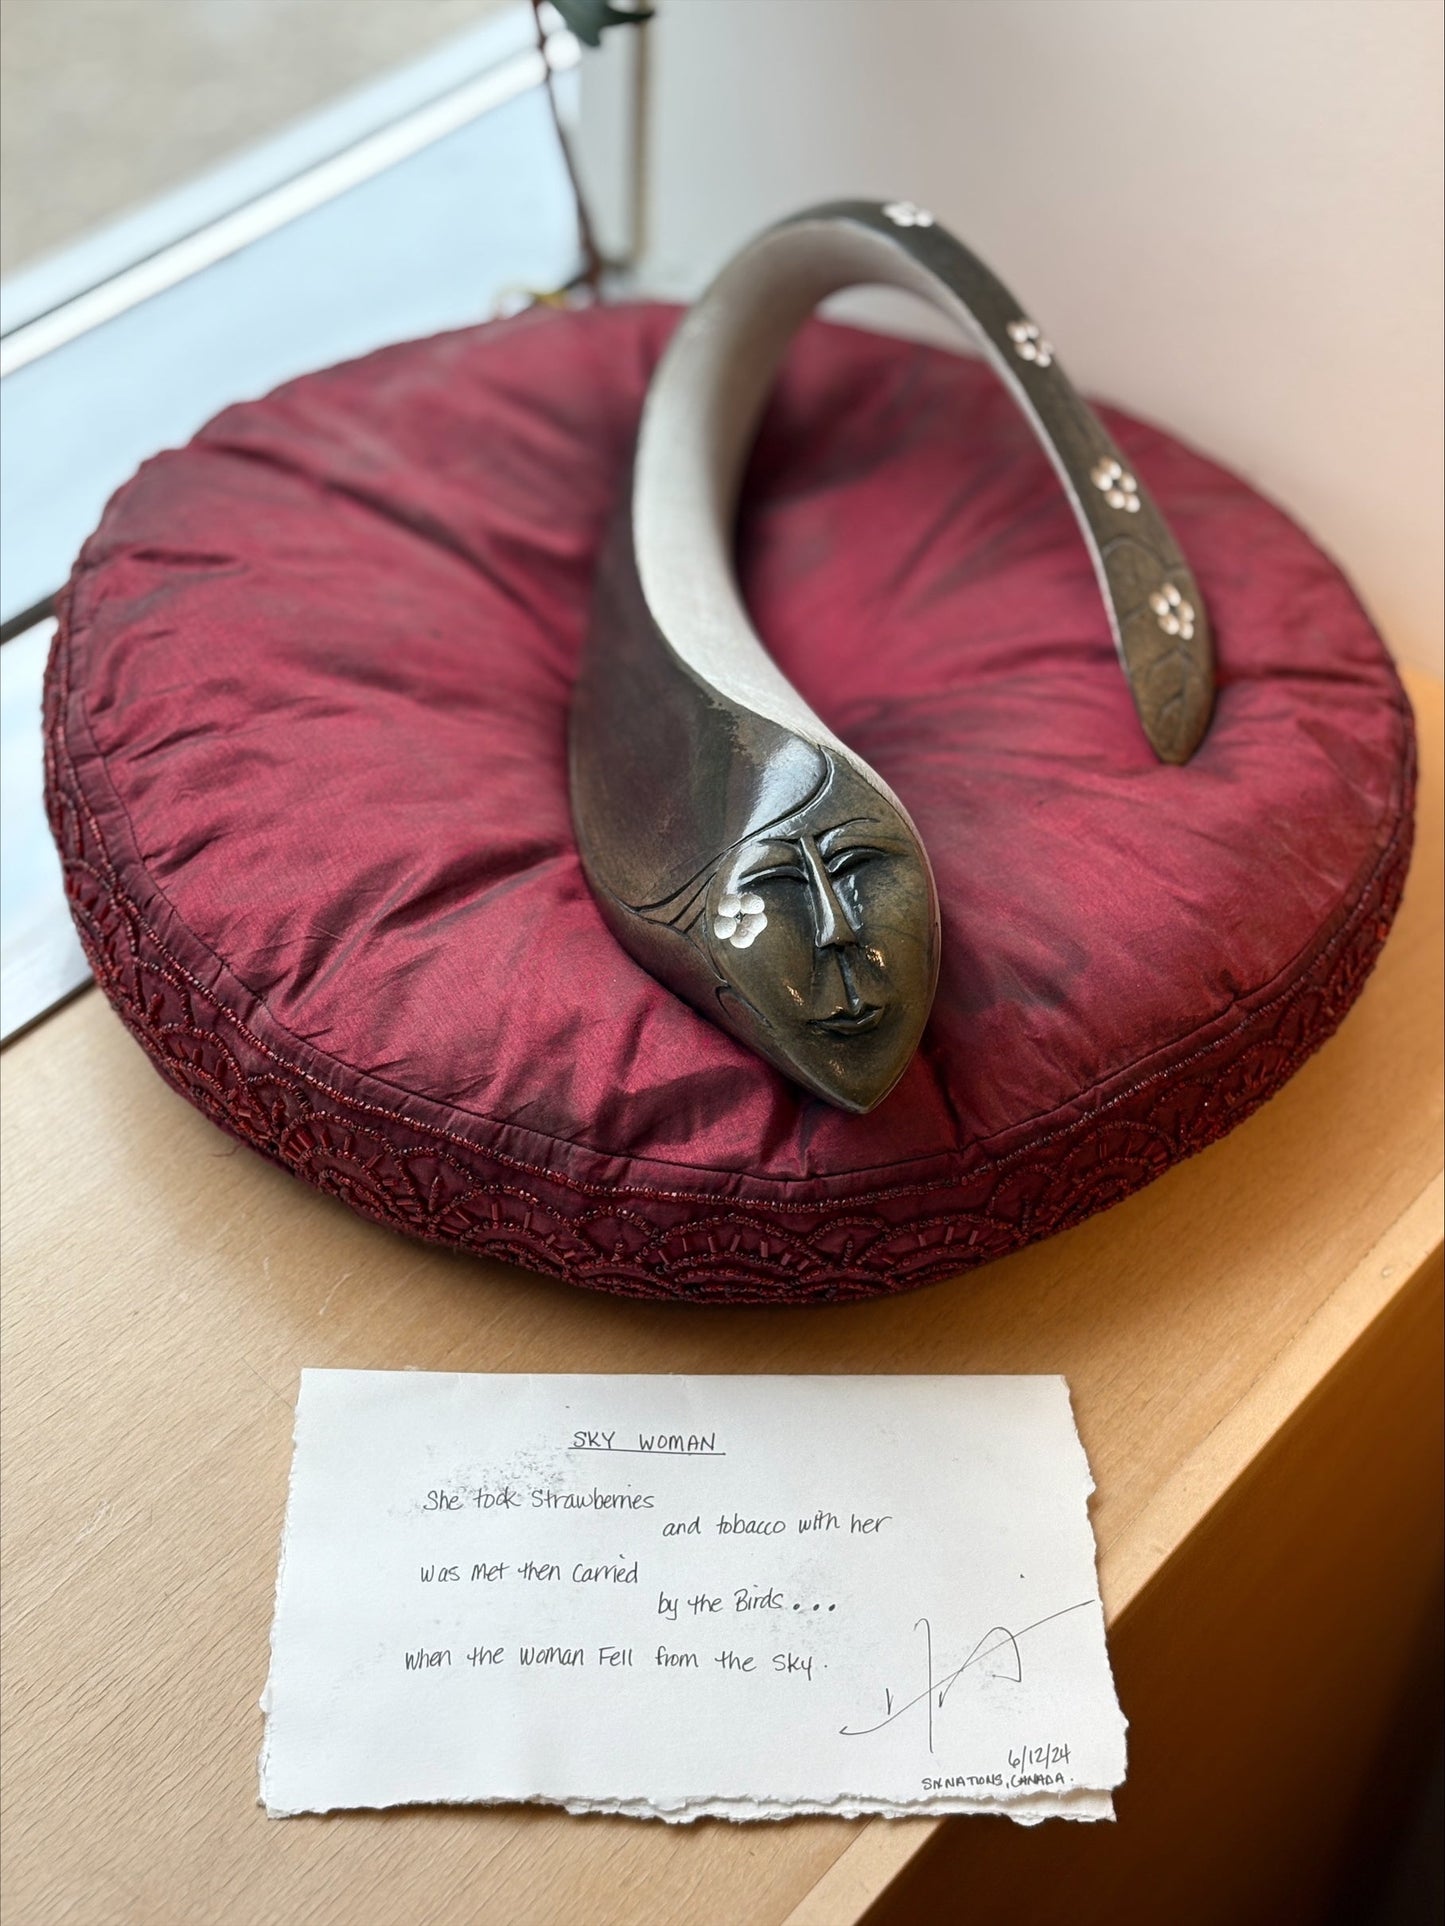 SKY WOMAN
She took Strawberries
and tobacco with her
was met then carried
by the Birds...
when the woman Fell from the sky.
6/12/24
SIX NATIONS, CANADA.